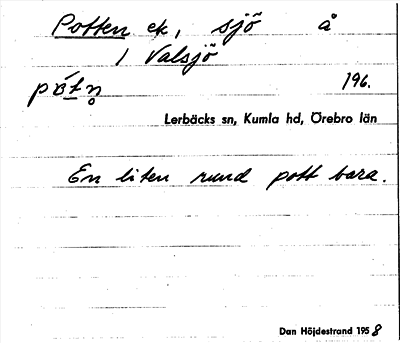 Potten ek, sjö å
/ Valsjö
pót̲n̥ 196.
Lerbäcks sn, Kumla hd, Örebro län
En liten rund pott bara.
Dan Höjdestrand 1958